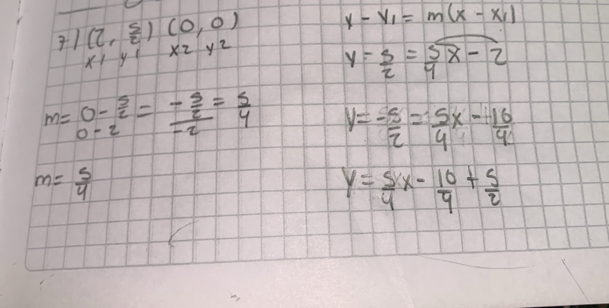 7) (2, 5/2) (0, 0)
x1 y1 x2 y2
m = 0 - 5/2 / 0 - 2 = - 5/2 / -2 = 5/4
m = 5/4
y - y1 = m(x - x1)
y - 5/2 = 5/4 x - 2
y = - 5/2 = 5/4 x - 10/4
y = 5/4 x - 10/4 + 5/2